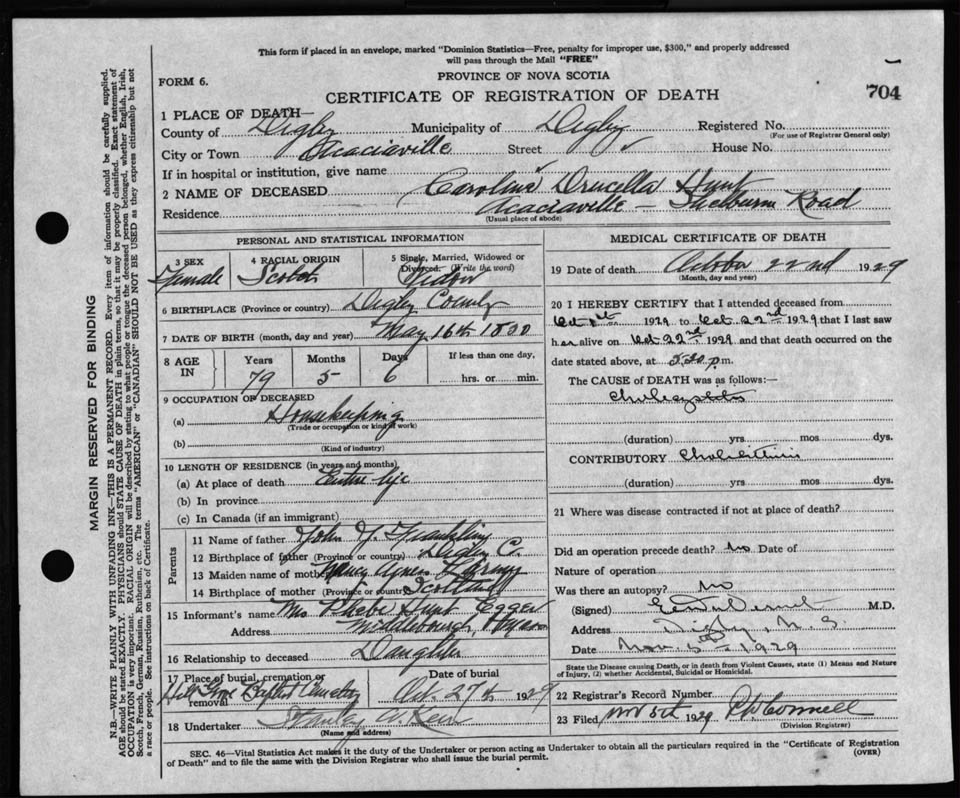 This form if placed in an envelope, marked "Dominion Statistics—Free, penalty for improper use, $300," and properly addressed
will pass through the Mail "FREE"
FORM 6.
PROVINCE OF NOVA SCOTIA
CERTIFICATE OF REGISTRATION OF DEATH
704
1 PLACE OF DEATH—
County of Digby Municipality of Digby Registered No.
(For use of Registrar General only)
City or Town Acaciaville Street House No.
If in hospital or institution, give name
2 NAME OF DECEASED Caroline Drucella Hunt
Residence Acaciaville — Shelburn Road
(Usual place of abode)
PERSONAL AND STATISTICAL INFORMATION
3 SEX 4 RACIAL ORIGIN 5 Single, Married, Widowed or
Divorced. (Write the word)
Female Scotch Widow
6 BIRTHPLACE (Province or country) Digby County
7 DATE OF BIRTH (month, day and year) May 16th 1850
8 AGE IN Years Months Days If less than one day,
79 5 6 hrs. or min.
9 OCCUPATION OF DECEASED
(a) Housekeeping
(Trade or occupation or kind of work)
(b)
(Kind of industry)
10 LENGTH OF RESIDENCE (in years and months)
(a) At place of death Entire life
(b) In province
(c) In Canada (if an immigrant)
Parents
11 Name of father John Franklin
12 Birthplace of father (Province or country) Digby C.
13 Maiden name of mother Nancy Agnes
14 Birthplace of mother (Province or country) Scotland
15 Informant's name Mrs Phebe Hunt Egger
Address Middleborough, Mass
16 Relationship to deceased Daughter
17 Place of burial, cremation or removal Date of burial
Hill Grove Baptist Cemetery Oct. 27th 1929
18 Undertaker Stanley
(Name and address)
MEDICAL CERTIFICATE OF DEATH
19 Date of death October 22nd 1929
(Month, day and year)
20 I HEREBY CERTIFY that I attended deceased from
Oct 1929 to Oct 22nd 1929 that I last saw
her alive on Oct 22nd 1929 and that death occurred on the
date stated above, at 5.20 p.m.
The CAUSE OF DEATH was as follows:—
(duration) yrs. mos dys.
CONTRIBUTORY
(duration) yrs mos dys.
21 Where was disease contracted if not at place of death?
Did an operation precede death? No Date of
Nature of operation
Was there an autopsy? No
(Signed) M.D.
Address Digby, N.S.
Date Nov. 5th 1929
State the Disease causing Death, or in death from Violent Causes, state (1) Means and Nature
of Injury, (2) whether Accidental, Suicidal or Homicidal.
22 Registrar's Record Number
23 Filed Nov 5th 1929
(Division Registrar)
SEC. 46—Vital Statistics Act makes it the duty of the Undertaker or person acting as Undertaker to obtain all the particulars required in the "Certificate of Registration
of Death" and to file the same with the Division Registrar who shall issue the burial permit.
(OVER)
MARGIN RESERVED FOR BINDING
N.B.—WRITE PLAINLY WITH UNFADING INK—THIS IS A PERMANENT RECORD. Every item of information should be carefully supplied.
AGE should be stated EXACTLY. PHYSICIANS should STATE CAUSE OF DEATH in plain terms, so that it may be properly classified. Exact statement of
OCCUPATION is very important. RACIAL ORIGIN will be described by stating to what people or tongue the deceased person belonged, whether English, Irish,
Scotch, French, German, Russian, Ruthenian, etc. The terms "AMERICAN" or "CANADIAN" SHOULD NOT BE USED as they express citizenship but not
a race or people. See instructions on back of Certificate.